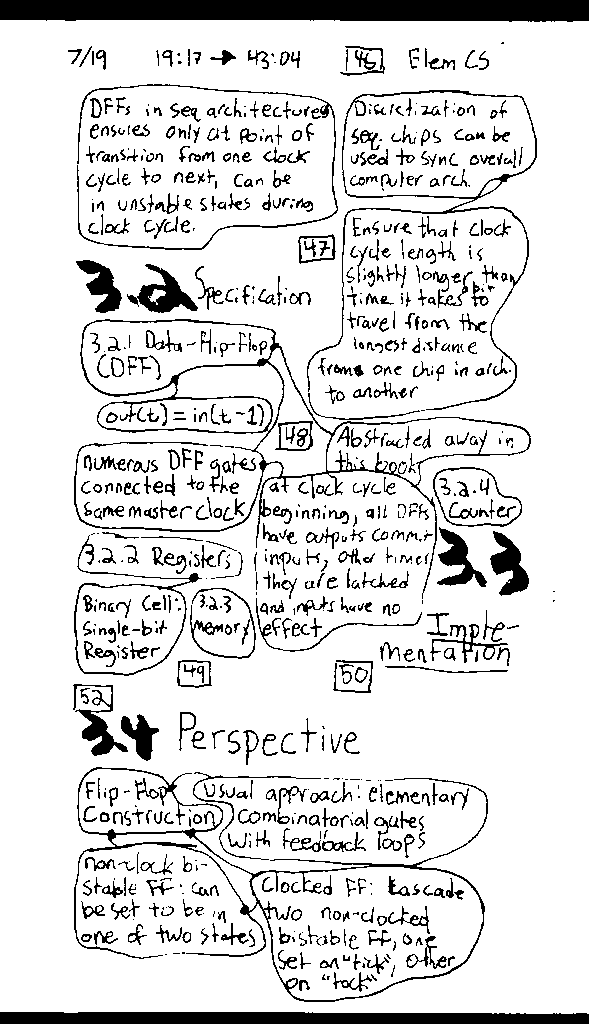 7/19 19:17 → 43:04 46 Elem CS
DFFs in seq architectures
ensures only at point of
transition from one clock
cycle to next, can be
in unstable states during
clock cycle.
Discretization of
seq. chips can be
used to sync overall
computer arch.
47
Ensure that clock
cycle length is
slightly longer than
time it takes bit to
travel from the
longest distance
from one chip in arch.
to another
3.2 Specification
3.2.1 Data-Flip-Flop
(DFF)
out(t) = in(t-1)
48
Abstracted away in
this book
numerous DFF gates
connected to the
same master clock
at clock cycle
beginning, all DFFs
have outputs commit
inputs, other times
they are latched
and inputs have no
effect
3.2.4
Counter
3.2.2 Registers
Binary Cell:
Single-bit
Register
3.2.3
Memory
3.3
Imple-
mentation
49
50
52
3.4 Perspective
Flip-Flop
Construction
Usual approach: elementary
combinatorial gates
with feedback loops
non-clock bi-
stable FF: can
be set to be in
one of two states
Clocked FF: cascade
two non-clocked
bistable FF, one
set on "tick", other
on "tock"